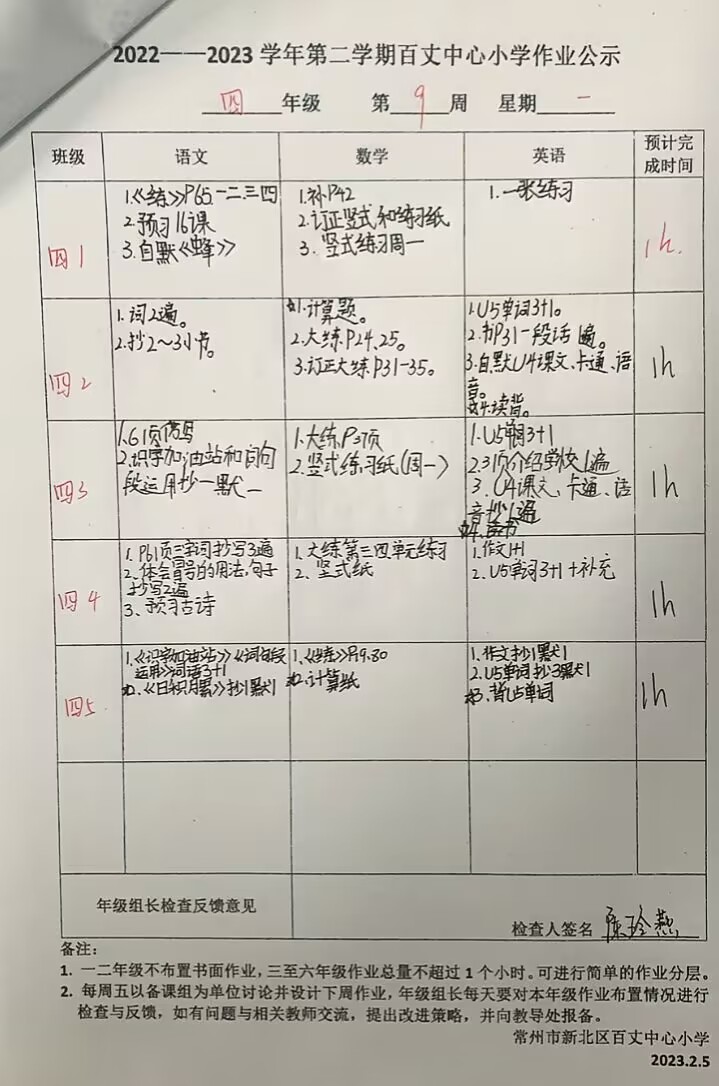 2022——2023 学年第二学期百丈中心小学作业公示
四 年级 第 9 周 星期 一
班级 语文 数学 英语 预计完成时间
四1
1.《练》P65.一二.三四
2.预习16课
3.自默《蜂》
1.补P42
2.订正竖式和练习纸
3. 竖式练习周一
1.一张练习
1h.
四2
1.词2遍。
2.抄2～3小节。
1.计算题。
2.大练P24、25。
3.订正大练P31-35。
1.U5单词3+1。
2.书P31一段话1遍。
3.自默U4课文、卡通、语
音。
4.读背。
1h
四3
1.61页仿写
2.识字加油站和词句
段运用抄一默一
1.大练P37页
2.竖式练习纸(周一)
1.U5单词3+1
2.31页介绍学校1遍
3.U4课文、卡通、语
音抄1遍
4.读书
1h
四4
1.P61页三字词抄写3遍
2、体会冒号的用法,句子
抄写2遍
3、预习古诗
1.大练第三四单元练习
2、竖式纸
1.作文1+1
2.U5单词3+1+补充
1h
四5
1.《识字加油站》《词句段
运用》词语3+1
2.《日积月累》抄1默1
2.计算纸
1.作文抄1默1
2.U5单词抄3默1
3.背U5单词
1h
年级组长检查反馈意见
检查人签名
备注:
1. 一二年级不布置书面作业，三至六年级作业总量不超过 1 个小时。可进行简单的作业分层。
2. 每周五以备课组为单位讨论并设计下周作业，年级组长每天要对本年级作业布置情况进行
检查与反馈，如有问题与相关教师交流，提出改进策略，并向教导处报备。
常州市新北区百丈中心小学
2023.2.5